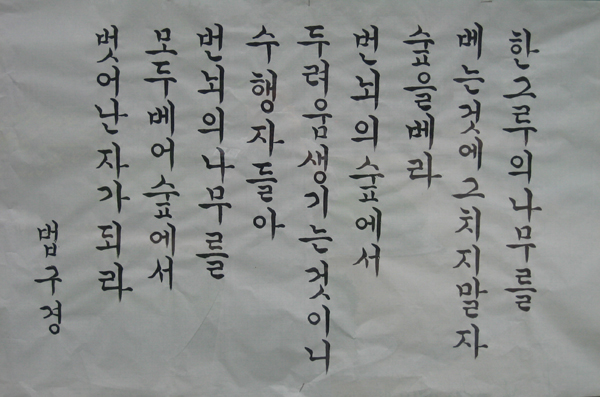 한그루의나무를
베는것에그치지말자
숲을베라
번뇌의숲에서
두려움생기는것이니
수행자들아
번뇌의나무를
모두베어숲에서
벗어난자가되라
법구경